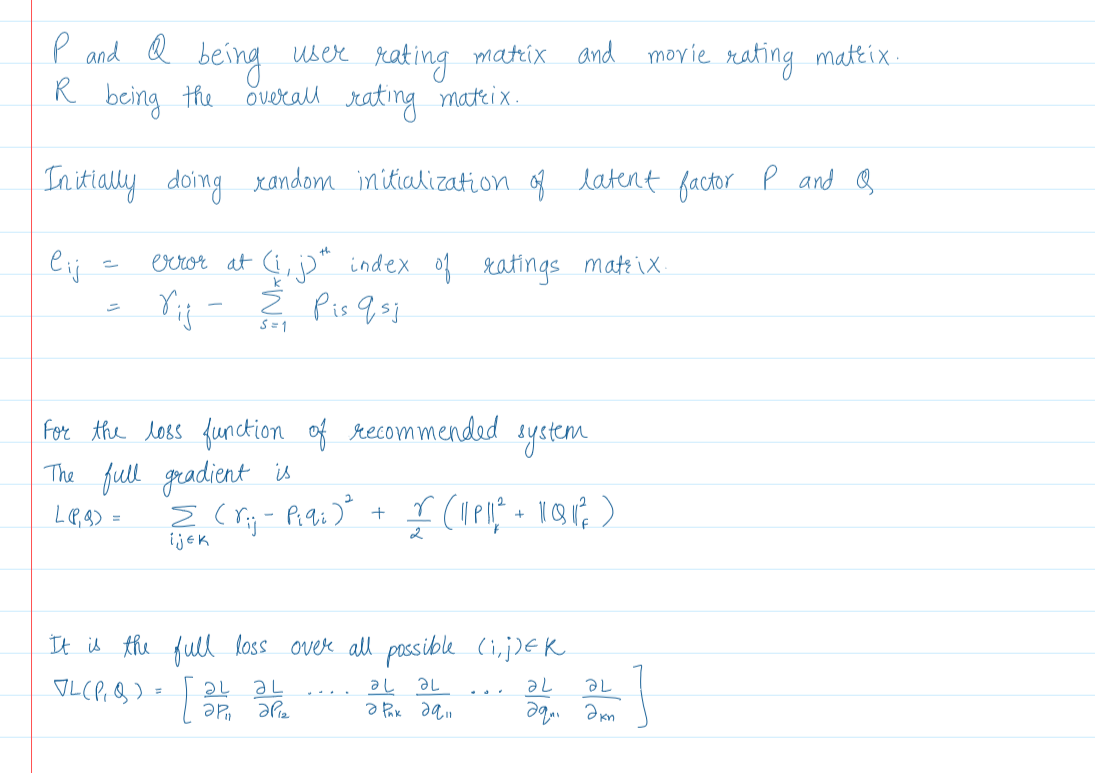 P and Q being user rating matrix and movie rating matrix.
R being the overall rating matrix.
Initially doing random initialization of latent factor P and Q
eᵢⱼ = error at (i,j)ᵗʰ index of ratings matrix.
= rᵢⱼ - Σ_{s=1}^{k} p_{is} q_{sj}
For the loss function of recommended system
The full gradient is
L(P,Q) = Σ_{ij∈K} (r_{ij} - P_i q_i)² + γ/2 (‖P‖²_F + ‖Q‖²_F)
It is the full loss over all possible (i,j)∈K
∇L(P,Q) = [ ∂L/∂P₁₁ ∂L/∂P₁₂ .... ∂L/∂P_{nk} ∂L/∂q₁₁ ... ∂L/∂q_{n1} ∂L/∂_{kn} ]